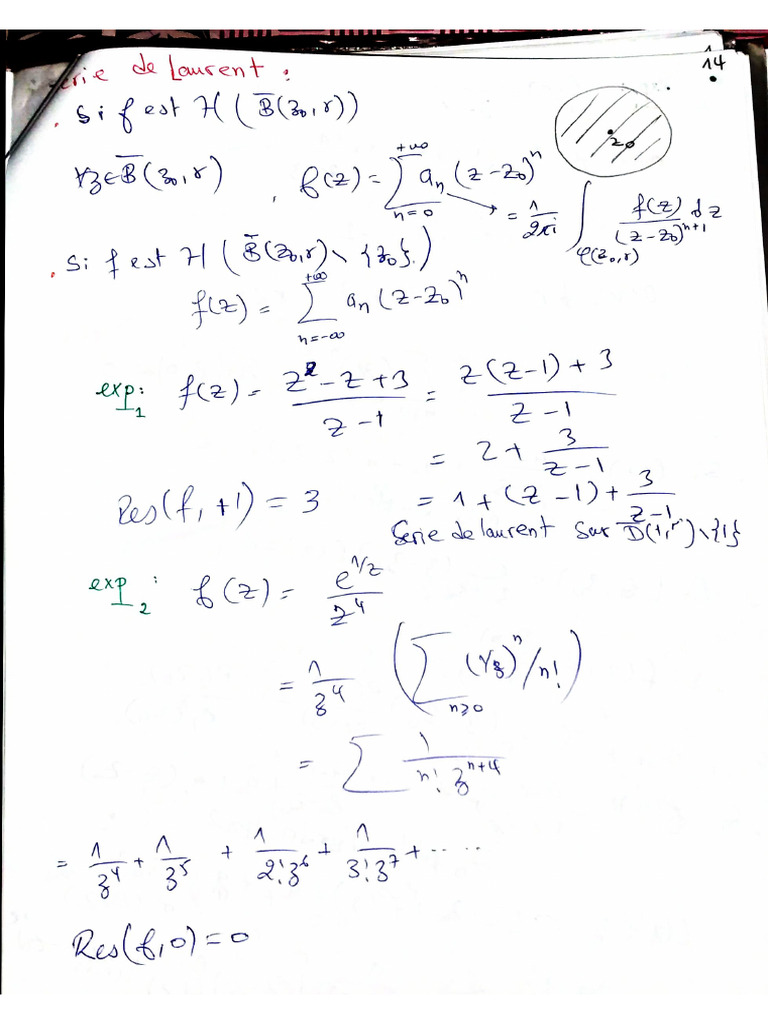 14
Serie de Laurent :
. Si f est H ( B̅(z₀, r))
z₀
∀z ∈ B̅(z₀, r) , f(z) = ∑_{n=0}^{+∞} aₙ (z - z₀)ⁿ
= 1/2πi ∫_{φ(z₀, r)} f(z)/(z - z₀)ⁿ⁺¹ dz
. Si f est H ( B̅(z₀, r) \ {z₀}.)
f(z) = ∑_{n=-∞}^{+∞} aₙ (z - z₀)ⁿ
exp₁: f(z) = (z² - z + 3)/(z - 1) = (z(z - 1) + 3)/(z - 1)
= z + 3/(z - 1)
Res(f, +1) = 3 = 1 + (z - 1) + 3/(z - 1)
Serie de laurent sur D(1, r) \ {1}
exp₂ : f(z) = e^{1/z}/z⁴
= 1/z⁴ ( ∑_{n≥0} (1/z)ⁿ/n! )
= ∑ 1/(n! zⁿ⁺⁴)
= 1/z⁴ + 1/z⁵ + 1/(2! z⁶) + 1/(3! z⁷) + .....
Res(f, 0) = 0